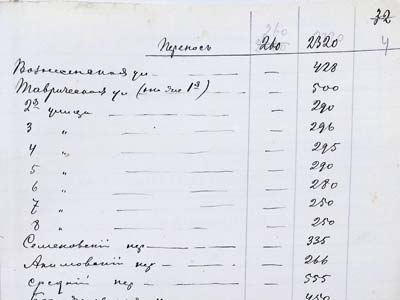 32
4
Переносъ 260 2320
Вознесенская ул — — 428
Таврическая ул (она же 1я) — — 500
2я улица — — 290
3 „ — — 296
4 „ — — 295
5 „ — — 290
6 „ — — 280
7 „ — — 250
8 „ — — 250
Семеновскій пер — — 335
Акимовскій пер — — 266
средній пер — — 555
450